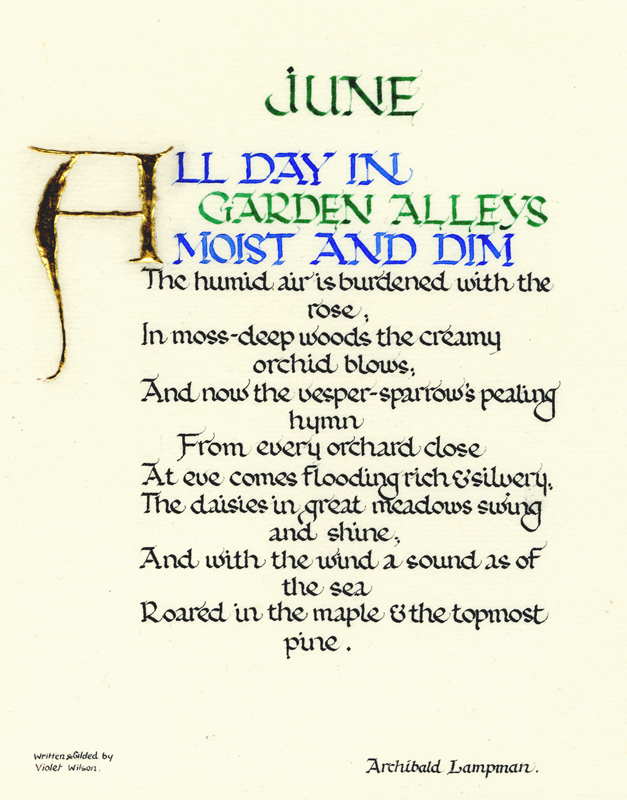 JUNE
ALL DAY IN
GARDEN ALLEYS
MOIST AND DIM
The humid air is burdened with the
rose;
In moss-deep woods the creamy
orchid blows;
And now the vesper-sparrow's pealing
hymn
From every orchard close
At eve comes flooding rich & silvery;
The daisies in great meadows swing
and shine;
And with the wind a sound as of
the sea
Roared in the maple & the topmost
pine.
Written & Gilded by
Violet Wilson.
Archibald Lampman.